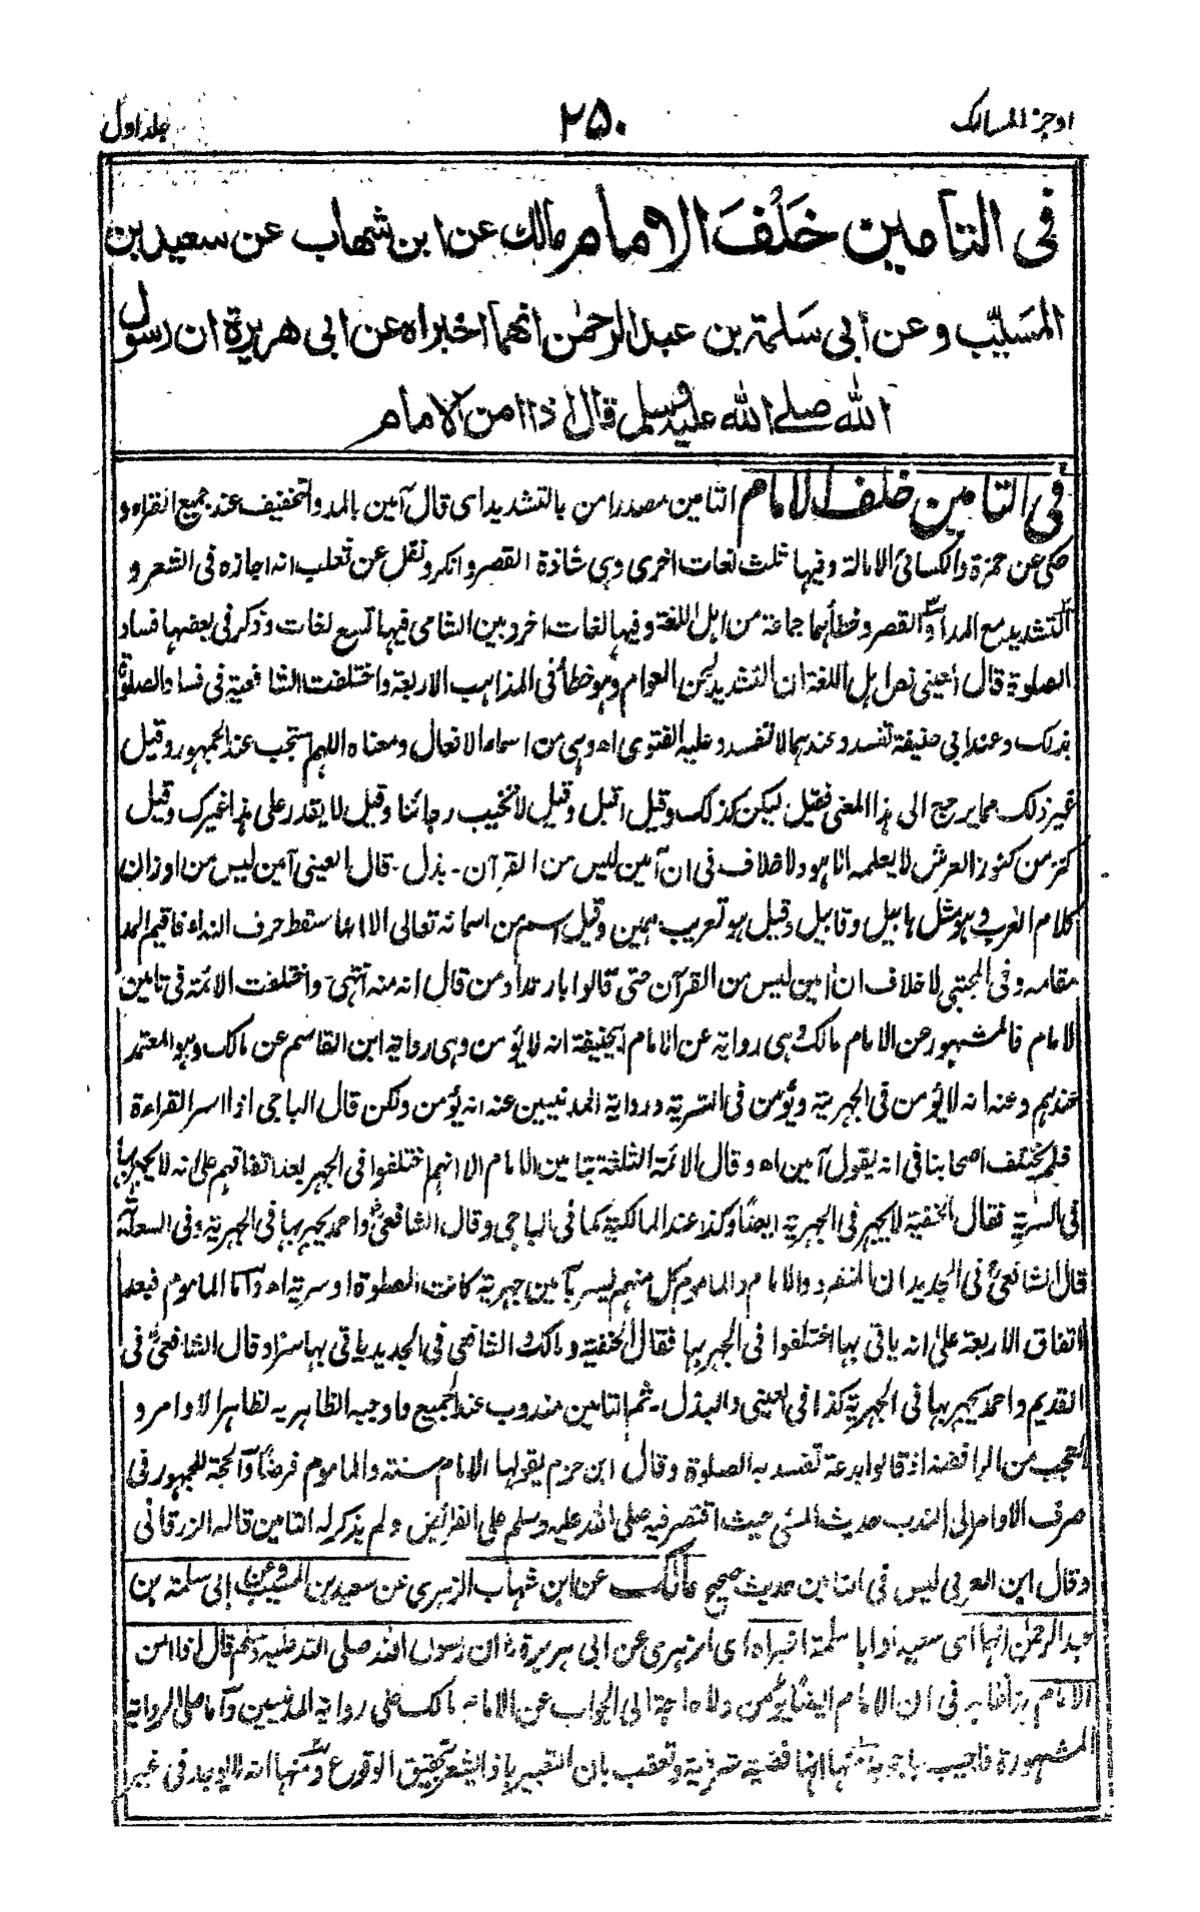 اوجز المسالك
٢٥٠
جلد اول
فى التامين خَلْفَ الامام مالك عن ابن شهاب عن سعيد بن
المسيّب وعن أبى سلمة بن عبد الرحمٰن انهما اخبراه عن ابى هريرة ان رسول
الله صلے الله عليه وسلم قال اذا امن الامام
فى التامين خلف الامام التامين مصدر امن بالتشديد اى قال آمين بالمد والتخفيف عند جميع القراء و
حكى عن حمزة والكسائى الامالة وفيها ثلث لغات اخرى وہى شاذة القصر وانكر ونقل عن ثعلب انه اجازه فى الشعر و
التشديد مع المد و القصر وخطأہما جماعة من اہل اللغة وفيها لغات اخر وبين الشامى فيها تسع لغات وذكر فى بعضها فساد
الصلوة قال العينى نص اہل اللغة ان التشديد لحن العوام وہو خطأ فى المذاہب الاربعة واختلفت الشافعية فى فساد الصلوة
بذلك وعند ابى حنيفة تفسد وعندہما لا تفسد وعليه الفتوى اھ وہى من اسماء الافعال ومعناه اللهم استجب عند الجمهور وقيل
غير ذلك مما يرجع الى ہذا المعنى فقيل ليكن كذلك وقيل اقبل وقيل لا تخيب رجائنا وقيل لا يقدر على ہذا غيرك وقيل
كنز من كنوز العرش لا يعلمه الا ہو ولا خلاف فى ان آمين ليس من القرآن۔ بذل۔ قال العينى آمين ليس من اوزان
كلام العرب وہو مثل ہابيل وقابيل وقيل ہو تعريب ہمين وقيل اسم من اسمائه تعالى الا انه اسقط حرف النداء فاقيم المد
مقامه وفى المجتبى لا خلاف ان امين ليس من القرآن حتى قالوا بارتداد من قال انه منه انتهى۔ واختلفت الائمة فى تامين
الامام فالمشهور عن الامام مالك وہى رواية عن الامام ابيحنيفة انه لا يؤمن وہى رواية ابن القاسم عن مالك وہو المعتمد
عندہم وعنه انه لا يؤمن فى الجهرية ويؤمن فى السرية ورواية المدنيين عنه انه يؤمن ولكن قال الباجى اذا اسر القراءة
فلم يختلف اصحابنا فى انه يقول آمين اھ وقال الائمة الثلثة بتامين الامام الا انهم اختلفوا فى الجهر بعد اتفاقهم على انه لا يجهر بها
فى السرية فقال الحنفية لا يجهر فى الجهرية ايضًا وكذا عند المالكية كما فى الباجى وقال الشافعى واحمد يجهر بها فى الجهرية وفى السعاية
قال الشافعى فى الجديد ان المنفرد والامام والماموم كل منهم يسر بآمين جهرية كانت الصلوة او سرية اھ واما الماموم فبعد
اتفاق الاربعة على انه ياتى بها اختلفوا فى الجهر بها فقال الحنفية ومالك والشافعى فى الجديد ياتى بها سرًا وقال الشافعى فى
القديم واحمد يجهر بها فى الجهرية كذا فى العينى والبذل۔ ثم التامين مندوب عند الجميع واوجبه الظاہرية لظاہر الاوامر و
العجب من الرافضة اذ قالوا بدعة تفسد به الصلوة وقال ابن حزم يقولها الامام سنته والماموم فرضًا والحجة للجمهور فى
صرف الاوامر الى الندب حديث المسئى حيث اقتصر فيه صلى الله عليه وسلم على الفرائض ولم يذكر له التامين قاله الزرقانى
وقال ابن العربى ليس فى التامين حديث صحيح مالك عن ابن شهاب الزہرى عن سعيد بن المسيب وعن ابى سلمة بن
عبد الرحمٰن انهما اى سعيد وابا سلمة اخبراه اى الزہرى عن ابى ہريرة ان رسول الله صلى الله عليه وسلم قال اذا امن
الامام ہذا ظاہر فى ان الامام ايضًا يؤمن ولا حاجة الى الجواب عن الامام مالك على رواية المدنيين واما على الرواية
المشهورة فاجيب باجوبة منها انها قضية شرطية وتعقب بان التعبير باذا يشعر بتحقيق الوقوع ومنها انه لا يوجد فى غير